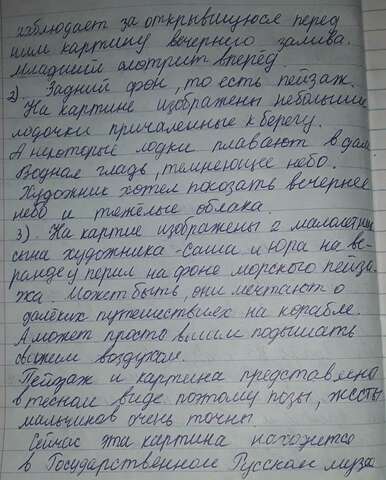 наблюдает за открывщуюся перед
ним картину вечернего залива.
Младший смотрит вперёд.
2). Задний фон, то есть пейзаж.
На картине изображены небольшие
лодочки причаленные к берегу.
А некоторые лодки плавают вдали
Водная гладь, темнеющее небо.
Художник хотел показать вечернее
небо и тяжёлые облака.
3). На картие изображены 2 малолетних
сына художника - Саша и Юра на ве-
ранде у перил на фоне морского пейза-
жа. Может быть, они мечтают о
далёких путешествиях на корабле.
А может просто вышли подышать
свежим воздухом.
Пейзаж и картина представлена
в тесном виде поэтому позы, жесты
мальчиков очень точны.
Сейчас эта картина находется
в Государственном Русском музее